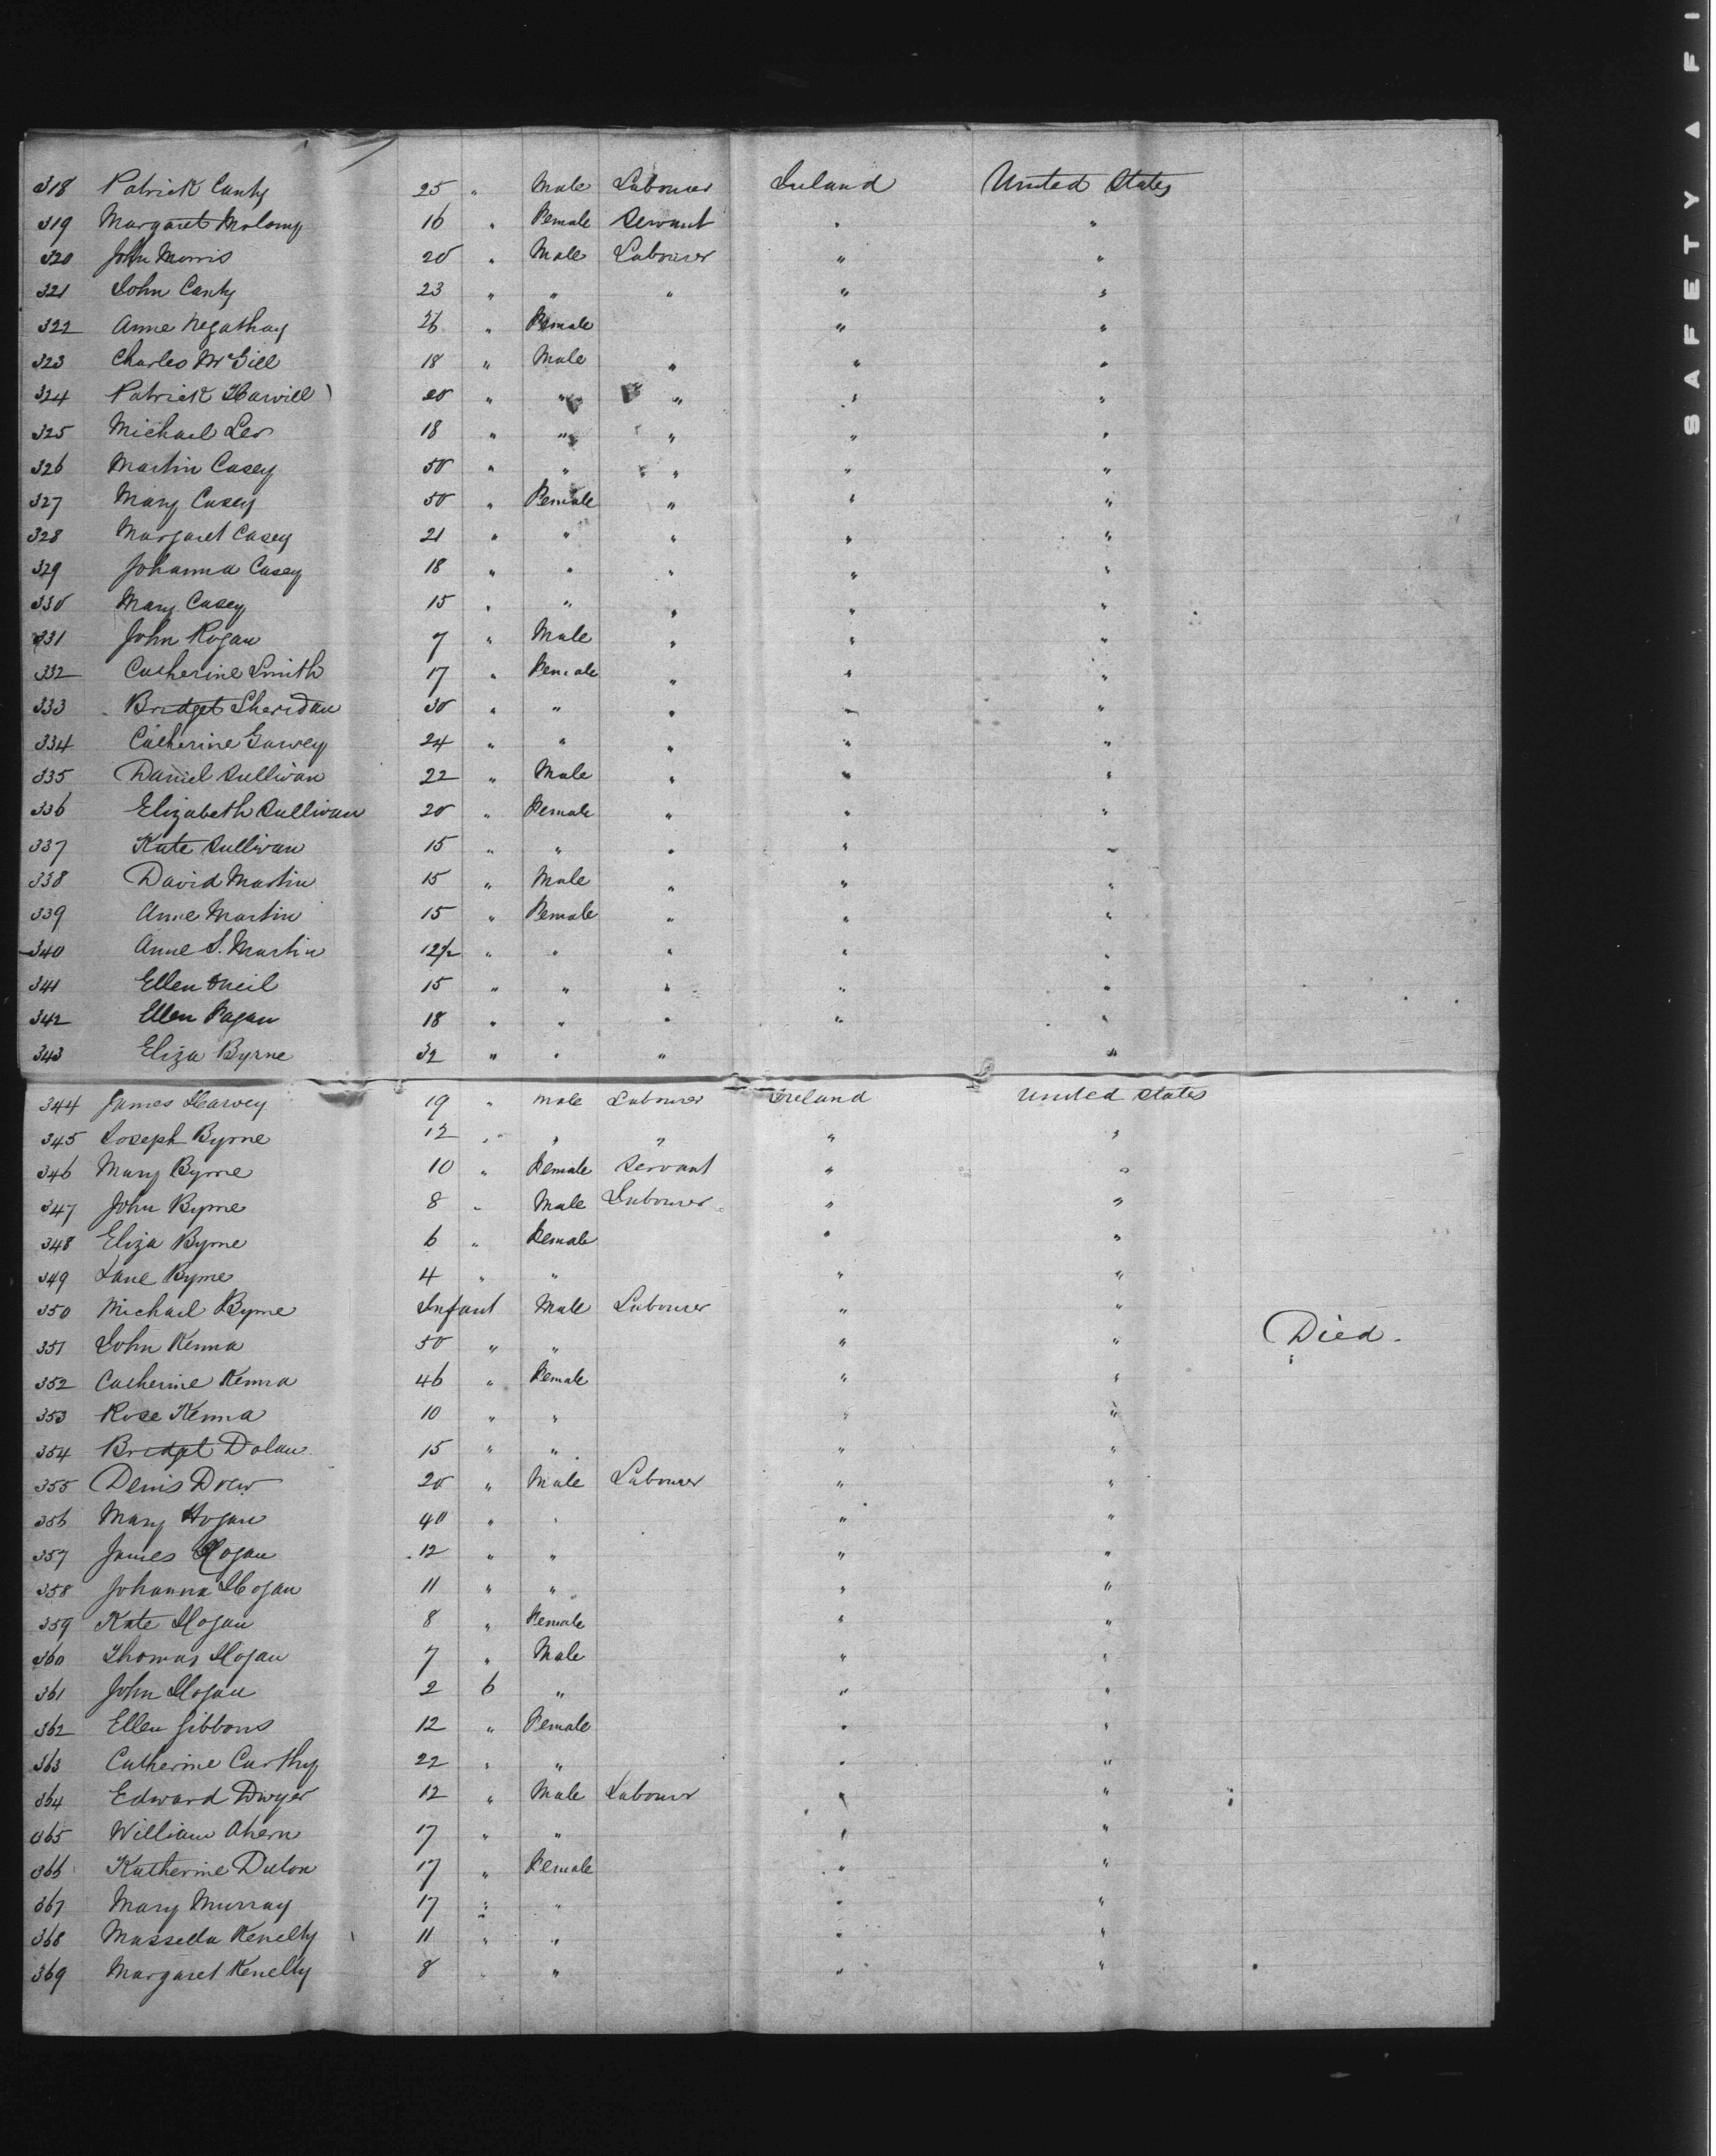 318 Patrick Canty 25 " Male Labourer Ireland United States
319 Margaret 16 " Female Servant " "
320 John Morris 20 " Male Labourer " "
321 John Canty 23 " " " " "
322 Anne 26 " Female " "
323 Charles McGill 18 " Male " " "
324 Patrick Harvill 20 " " " " "
325 Michael Leo 18 " " " " "
326 Martin Casey 50 " " " " "
327 Mary Casey 50 " Female " " "
328 Margaret Casey 21 " " " " "
329 Johanna Casey 18 " " " " "
330 Mary Casey 15 " " " " "
331 John Rogan 7 " Male " " "
332 Catherine Smith 17 " Female " " "
333 Bridget Sheridan 30 " " " " "
334 Catherine Garvey 24 " " " " "
335 Daniel Sullivan 22 " Male " " "
336 Elizabeth Sullivan 20 " Female " " "
337 Kate Sullivan 15 " " " " "
338 David Martin 15 " Male " " "
339 Anne Martin 15 " Female " " "
340 Anne S. Martin 12/2 " " " " "
341 Ellen Oneil 15 " " " " "
342 Ellen Fagan 18 " " " " "
343 Eliza Byrne 32 " " " "
344 James Harvey 19 " Male Labourer Ireland United States
345 Joseph Byrne 12 " " " " "
346 Mary Byrne 10 " Female Servant " "
347 John Byrne 8 " Male Labourer " "
348 Eliza Byrne 6 " Female " "
349 Jane Byrne 4 " " " "
350 Michael Byrne Infant Male Labourer " "
351 John Kenna 50 " " " " Died.
352 Catherine Kenna 46 " Female " " "
353 Rose Kenna 10 " " " "
354 Bridget Dolan 15 " " " "
355 Denis Drew 20 " Male Labourer " "
356 Mary Hogan 40 " " " "
357 James Hogan 12 " " " "
358 Johanna Hogan 11 " " " "
359 Kate Hogan 8 " Female " "
360 Thomas Hogan 7 " Male " "
361 John Hogan 2 6 " " "
362 Ellen Gibbons 12 " Female " "
363 Catherine Carthy 22 " " " "
364 Edward Dwyer 12 " Male Labourer " "
365 William Ahern 17 " " " "
366 Katherine Dulon 17 " Female " "
367 Mary Murray 17 " " " "
368 Massella Kenelly 11 " " " "
369 Margaret Kenelly 8 " " " "
SAFETY A FI